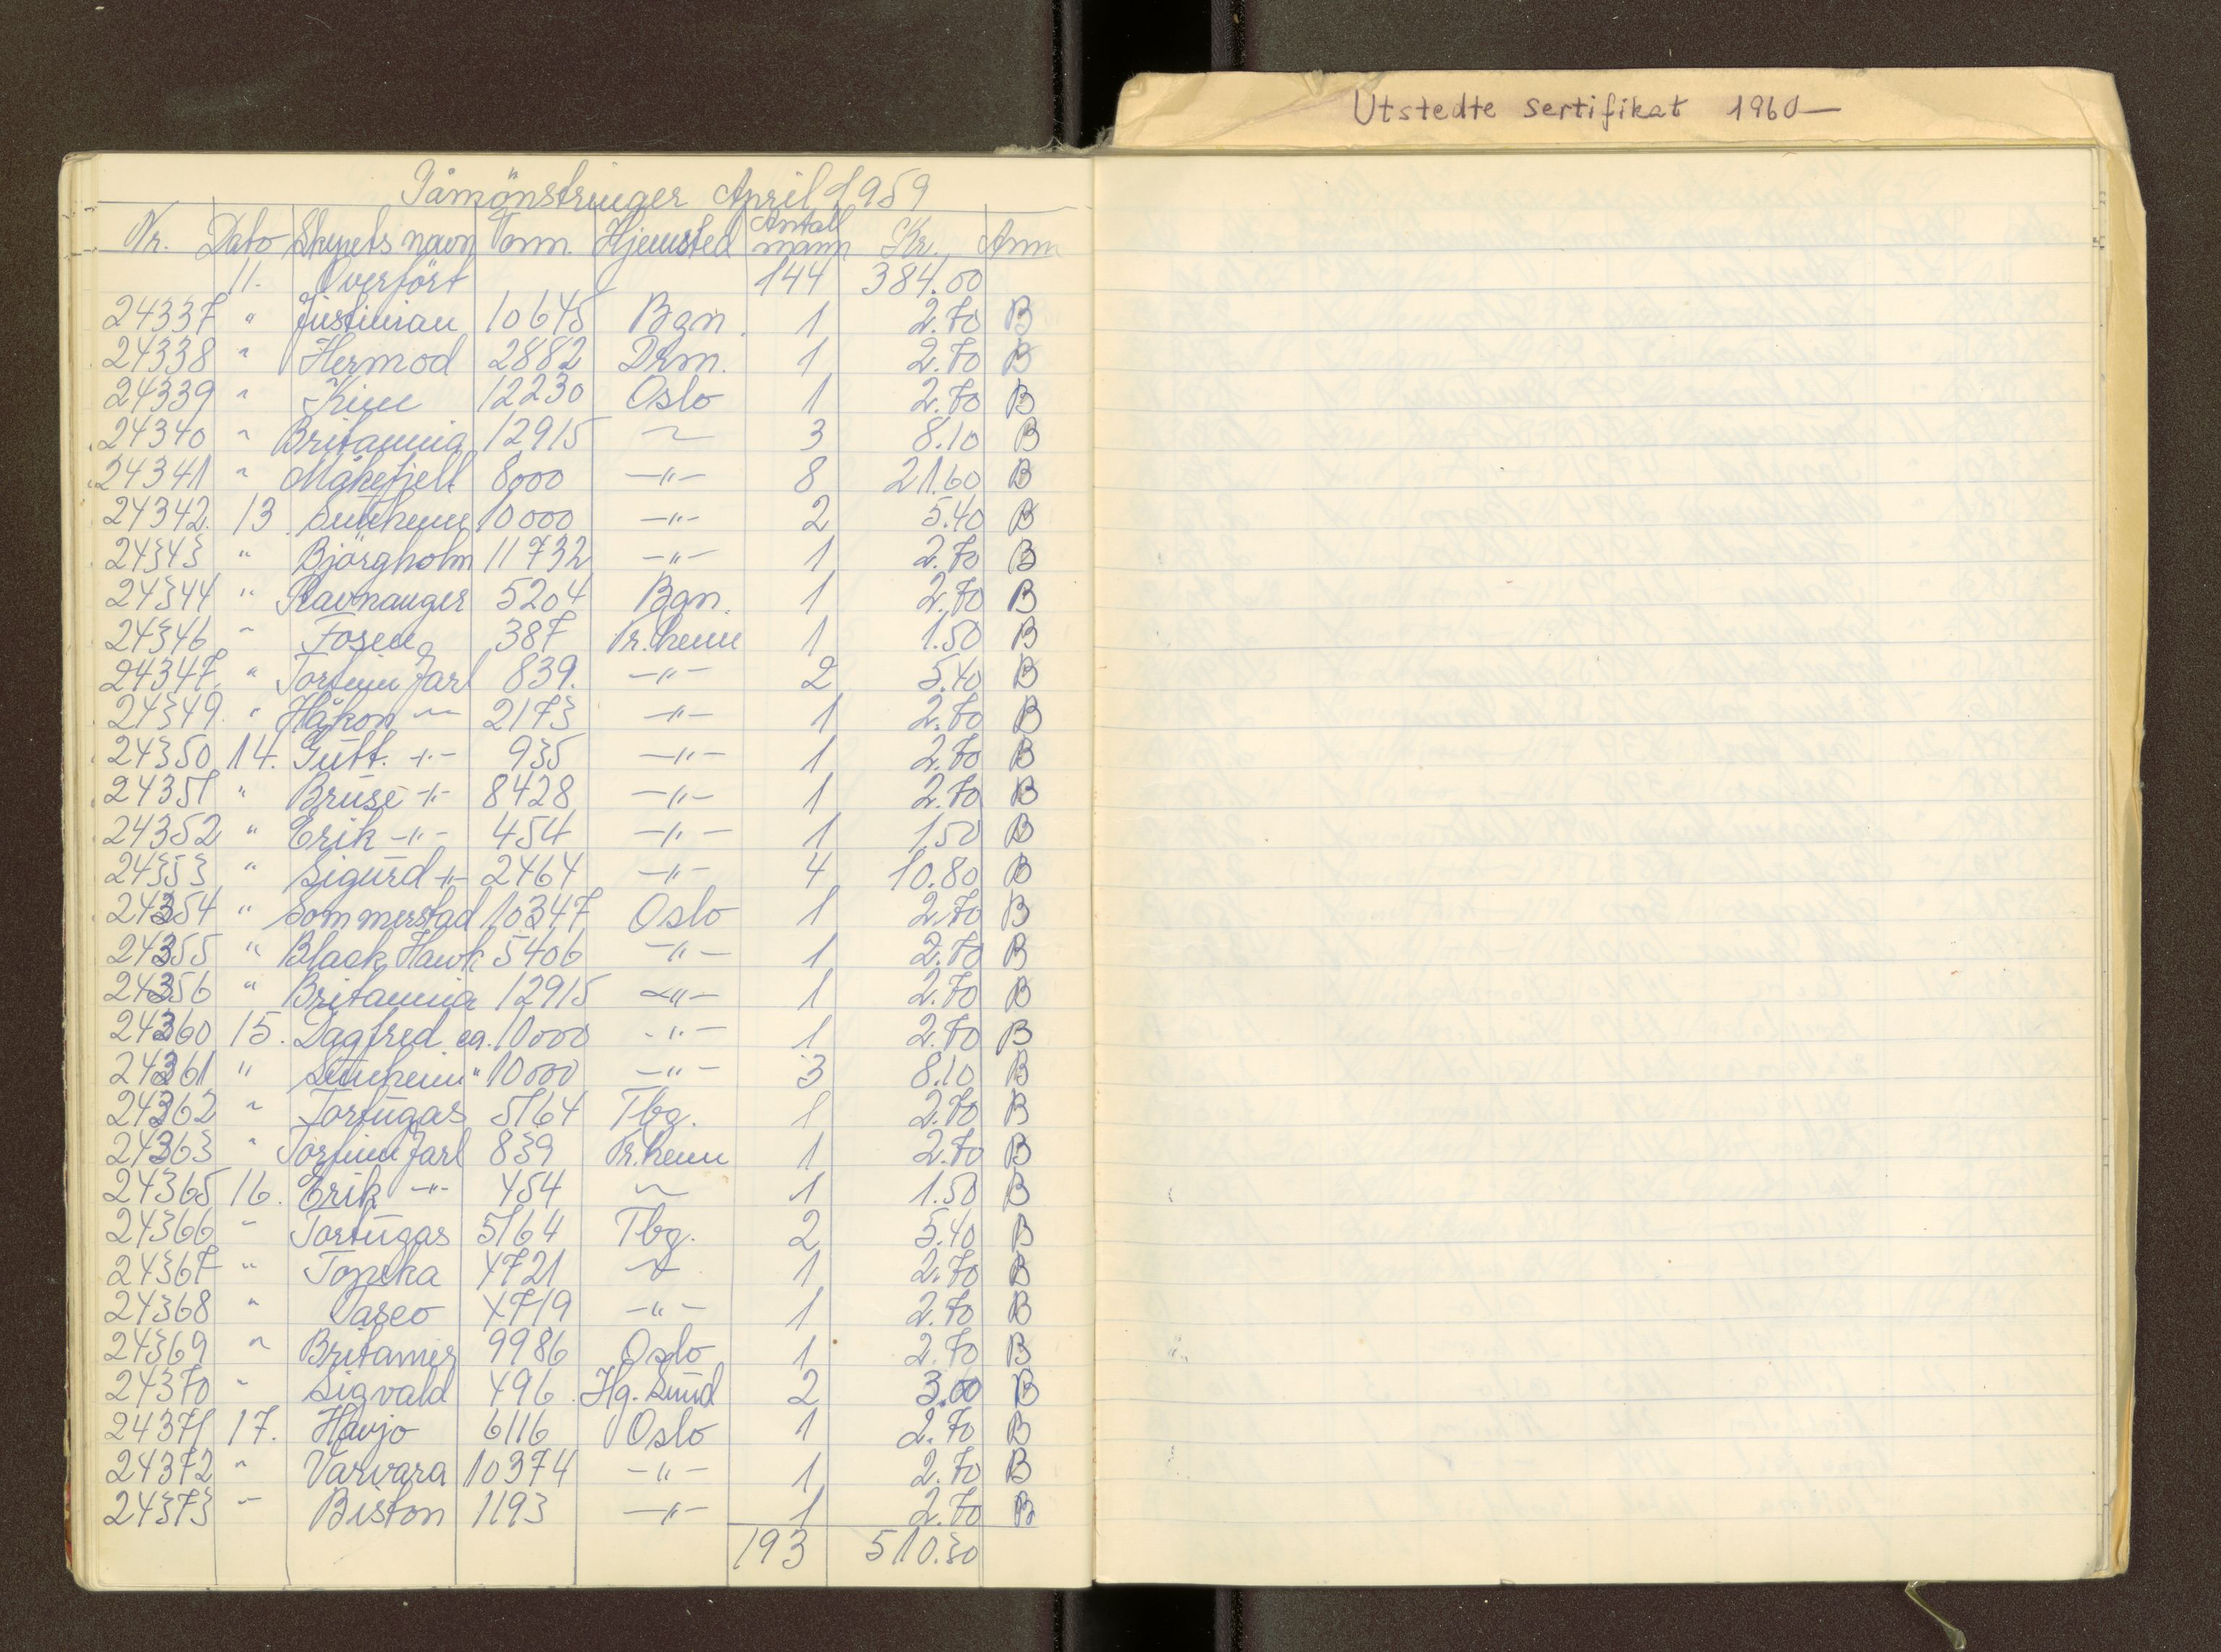 Utstedte sertifikat 1960—
Påmönstringer April 1959
Nr. Dato Skipets navn Tonn. Hjemsted Antall mann Kr. Anm
11. Overfört 144 384.00
24337 " Justinian 10645 Bgn. 1 2.70 B
24338 " Hermod 2882 Drm. 1 2.70 B
24339 " Kim 12230 Oslo 1 2.70 B
24340 " Britannia 12915 —"— 3 8.10 B
24341 " Måkefjell 8000 —"— 8 21.60 B
24342. 13 Sunheim 10000 —"— 2 5.40 B
24343 " Björgholm 11732 —"— 1 2.70 B
24344 " Ravnanger 5204 Bgn. 1 2.70 B
24346 " Fosen 387 Tr.heim 1 1.50 B
24347. " Torfinn Jarl 839. —"— 2 5.40 B
24349 " Håkon —"— 2173 —"— 1 2.70 B
24350 14. Gutt. —"— 935 —"— 1 2.70 B
24351 " Bruse —"— 8428 —"— 1 2.70 B
24352 " Erik —"— 454 —"— 1 1.50 B
24353 " Sigurd —"— 2464 —"— 4 10.80 B
24354 " Sommerstad 10347 Oslo 1 2.70 B
24355 " Black Hawk 5406 —"— 1 2.70 B
24356 " Britannia 12915 —"— 1 2.70 B
24360 15. Dagfred ca. 10000 —"— 1 2.70 B
24361 " Sunheim " 10000 —"— 3 8.10 B
24362 " Tortugas 5164 Tbg. 1 2.70 B
24363 " Torfinn Jarl 839 Tr.heim 1 2.70 B
24365 16. Erik —"— 454 —"— 1 1.50 B
24366 " Tortugas 5164 Tbg. 2 5.40 B
24367 " Topeka 4721 —"— 1 2.70 B
24368 " Taseo 4719 —"— 1 2.70 B
24369 " Britamer 9986 Oslo 1 2.70 B
24370 " Sigvald 496 Hg. Sund 2 3.00 B
24371 17. Havjo 6116 Oslo 1 2.70 B
24372 " Varvara 10374 —"— 1 2.70 B
24373 " Biston 1193 —"— 1 2.70 B
193 510.30